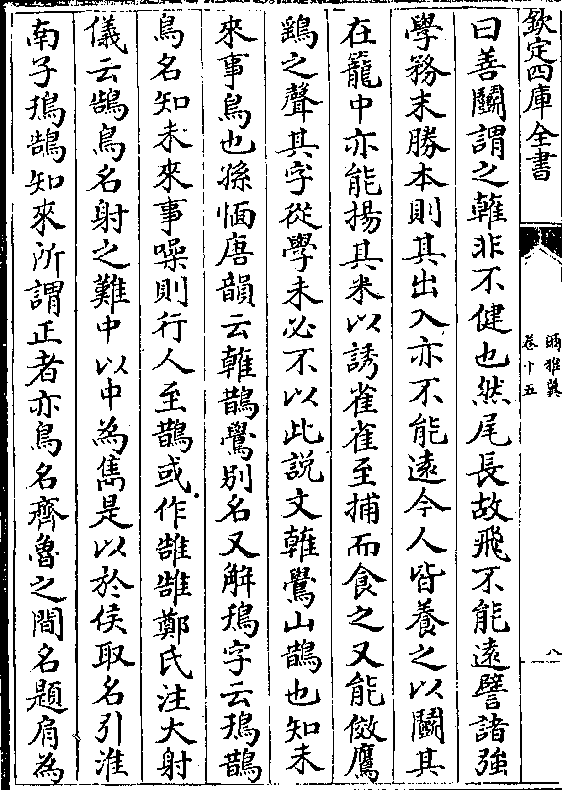 欽定四庫全書
爾雅翼
卷十五
八
曰善鬭謂之雗非不健也然尾長故飛不能遠譬諸強
學務末勝本則其出入亦不能遠今人皆養之以鬭其
在籠中亦能揚其米以誘雀雀至捕而食之又能傚鷹
鷂之聲其字從學未必不以此説文雗鷽山鵲也知未
來事鳥也孫愐唐韻云雗鵲鷽别名又解鳱字云鳱鵲
鳥名知未來事噪則行人至鵲或作䧿䧿鄭氏注大射
儀云鵠鳥名射之難中以中為雋是以於侯取名引淮
南子鳱鵠知來所謂正者亦鳥名齊魯之間名題肩為